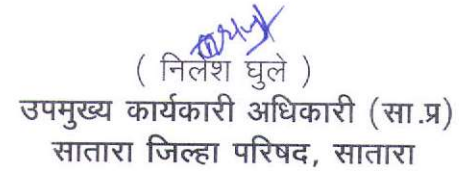 ( निलेश घुले )
उपमुख्य कार्यकारी अधिकारी (सा.प्र)
सातारा जिल्हा परिषद, सातारा